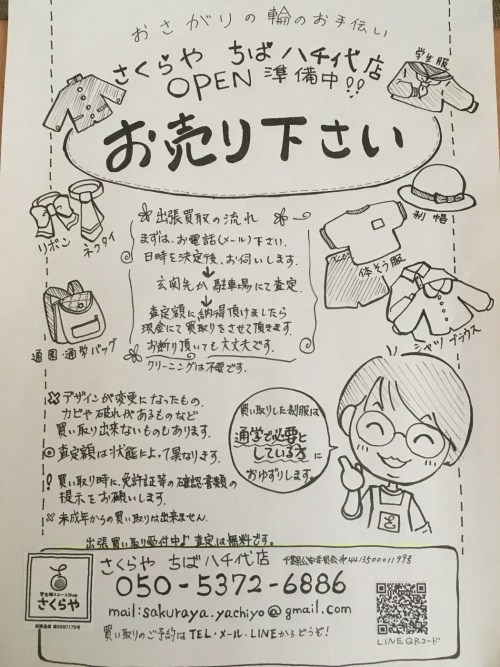 おさがりの輪のお手伝い
さくらや ちば八千代店
OPEN 準備中!!
学生服
お売り下さい
制帽
リボン
ネクタイ
体そう服
通園・通学バッグ
シャツ ブラウス
出張買取の流れ
まずは、お電話(メール)下さい。
日時を決定後、お伺いします。
玄関先か駐車場にて査定。
査定額に納得頂けましたら
現金にて買取りをさせて頂きます。
お断り頂いても大丈夫です。
クリーニングは不要です。
※デザインが変更になったもの。
カビや破れがあるものなど
買い取り出来ないものもあります。
◎査定額は状態によって異なります。
! 買い取り時に、免許証等の確認書類の
提示をお願いします。
※未成年からの買い取りは出来ません。
買い取りした制服は
通学で必要と
している方に
おゆずりします。
出張買い取り受付中♪ 査定は無料です。
さくらや ちば八千代店
千葉県公安委員会 第441350001199号
050-5372-6886
mail:sakuraya.yachiyo@gmail.com
買い取りのご予約はTEL・メール・LINEからどうぞ!
さくらや
LINE QRコード